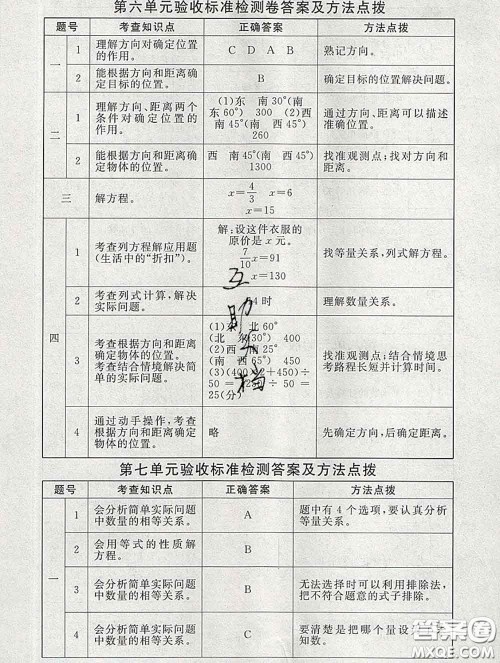 第六单元验收标准检测卷答案及方法点拨
题号 考查知识点 正确答案 方法点拨
一
1 理解方向对确定位置的作用。 C D A B 熟记方向。
2 能根据方向和距离确定目标的位置。 B 确定目标的位置解决问题。
二
1 理解方向、距离两个条件对确定位置的作用。 (1)东 南 30°(南 东 60°) 300 (2)西 南 45°(南 西 45°) 260 通过方向、距离可以描述准确位置。
2 能根据方向和距离确定物体的位置。 西 南 45°(南 西 45°) 1300 找准观测点;找对方向和距离。
三 解方程。 x=4/3 x=6
x=15
四
1 考查列方程解应用题(生活中的“折扣”)。 解:设这件衣服的原价是 x 元。
7/10x=91
x=130
找等量关系,列式解方程。
2 考查列式计算,解决实际问题。 4时 理解数量关系。
3 考查根据方向和距离确定物体的位置。
考查结合情境解决简单的实际问题。
(1)东 北 60°
(北 30°) 400
(2)西 南 25°
(南 西 65°) 450
(3)(400 +450)÷
50 = ÷ 50 =
25(分)
找准观测点;结合情境思考路程长短并计算时间。
4 通过动手操作,考查根据方向和距离确定物体的位置。 略 先确定方向,后确定距离。
互助文档
第七单元验收标准检测答案及方法点拨
题号 考查知识点 正确答案 方法点拨
一
1 会分析简单实际问题中数量的相等关系。 A 题中有 4 个选项,要认真分析等量关系。
2 会用等式的性质解方程。 B
3 会分析简单实际问题中数量的相等关系。 B 无法选择时可以利用排除法,把不符合题意的式子排除。
4 会分析简单实际问题中数量的相等关系。 C 要清楚是把哪个量设 知数。
答案圈
MXQE.COM